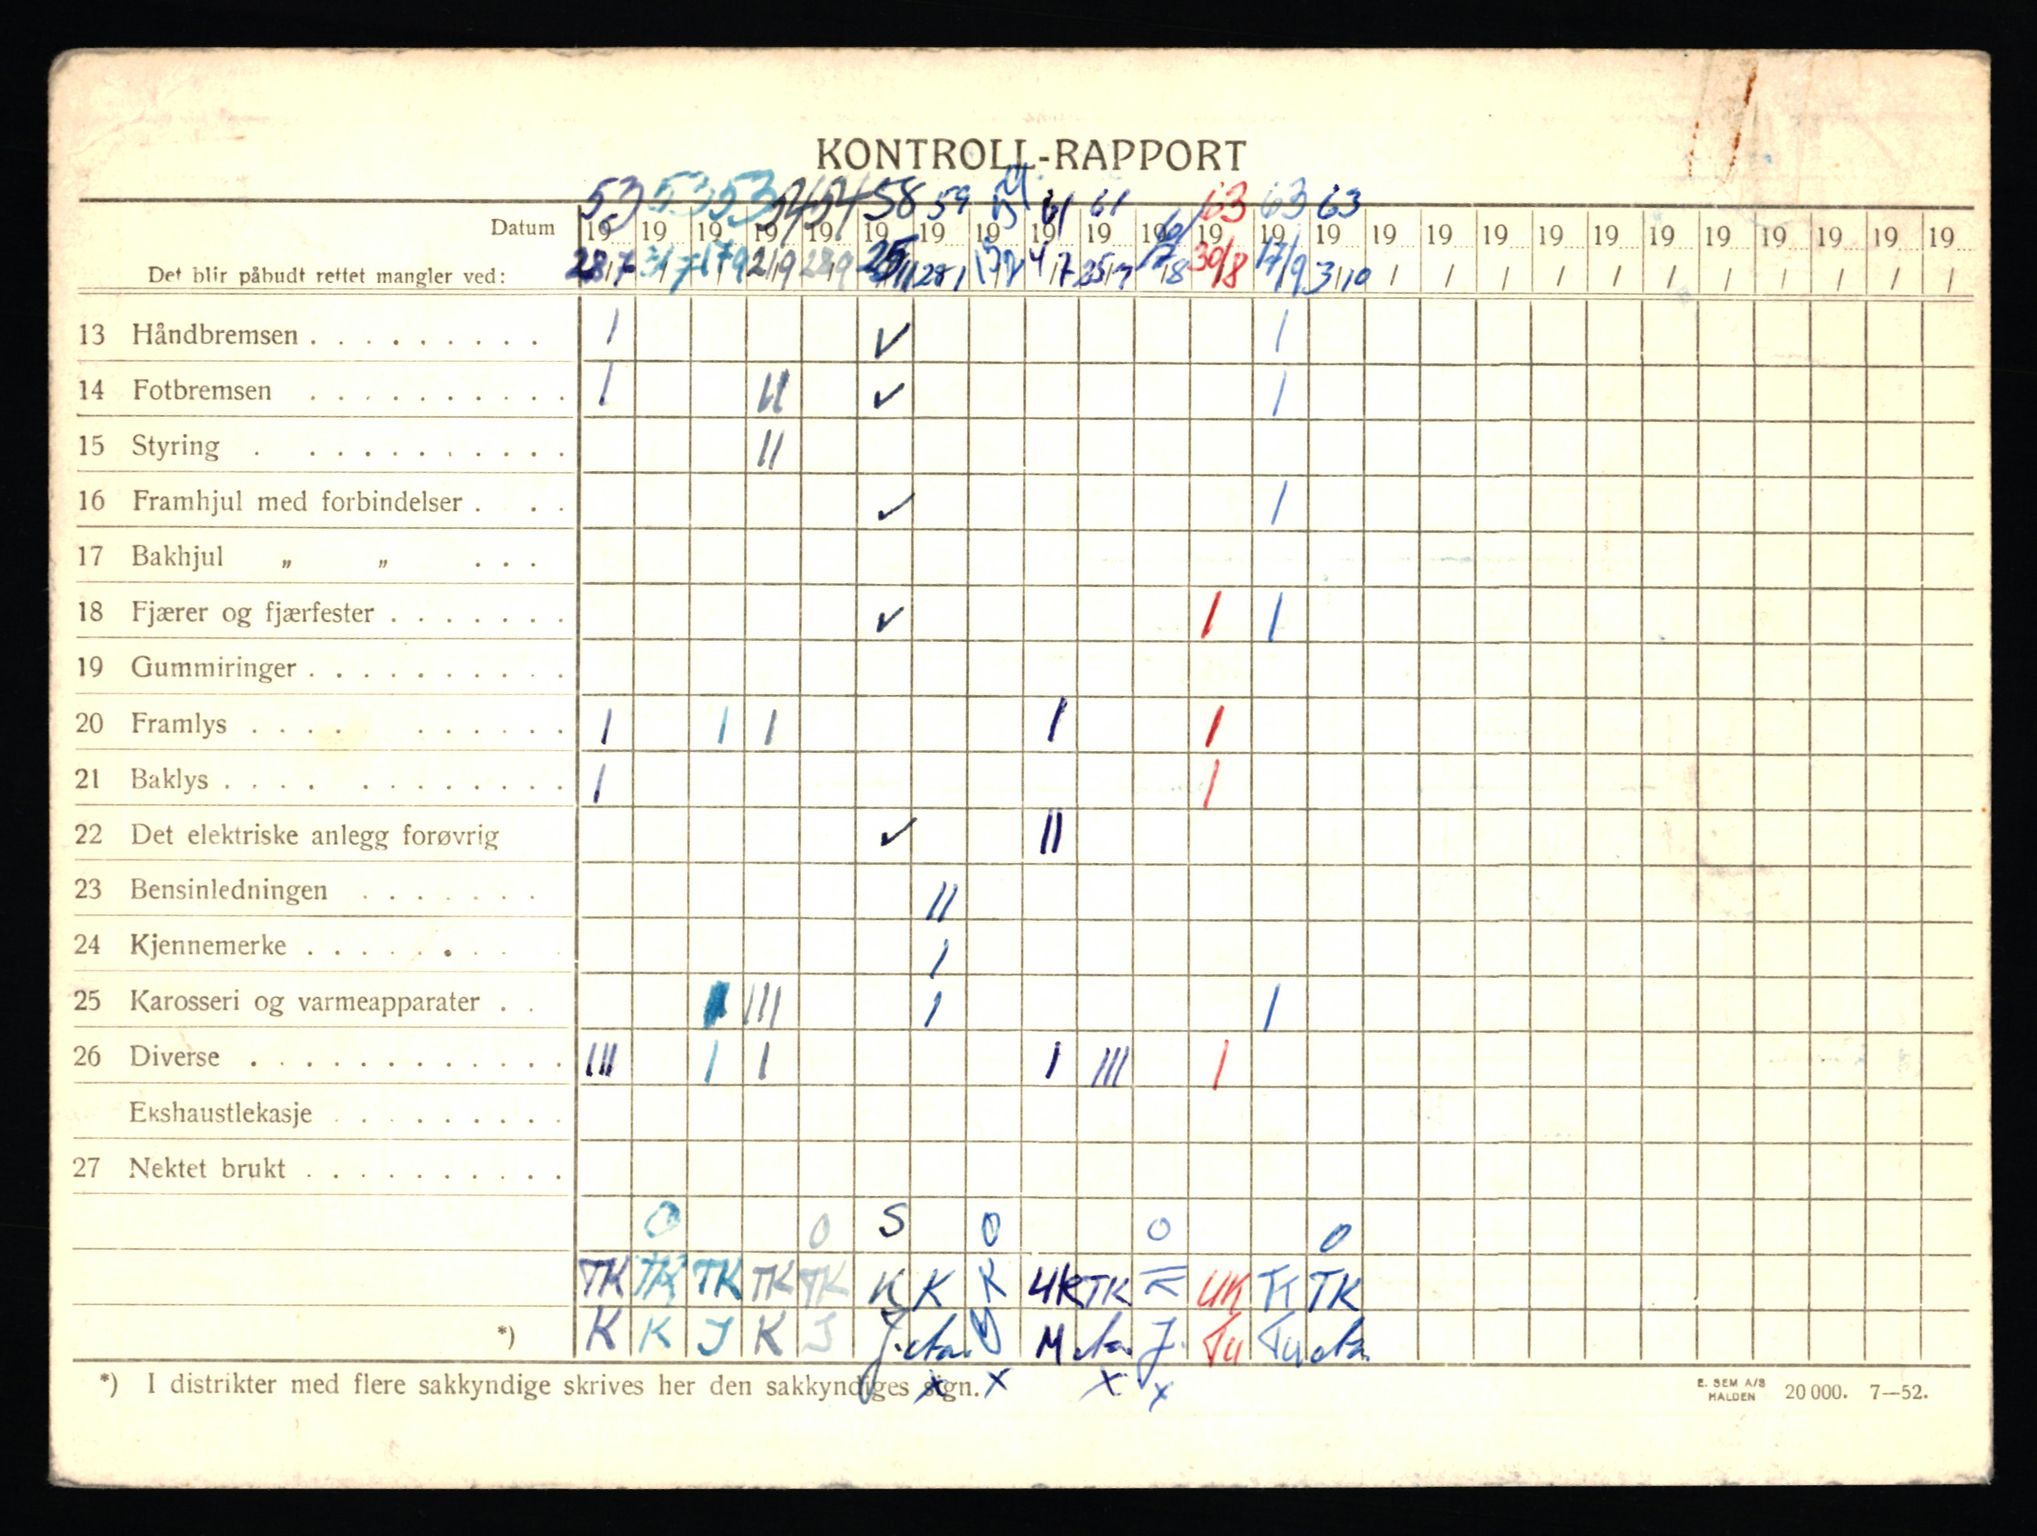 KONTROLL-RAPPORT
53 53 53 54 54 58 59 59 61 61 61 63 63 63
Datum 19 19 19 19 19 19 19 19 19 19 19 19 19 19 19 19 19 19 19 19 19 19 19 19 19
Det blir påbudt rettet mangler ved: 28/7 31/7 17/9 21/9 28/9 25/11 28/1 4/7 25/7 17/8 30/8 17/9 3/10 / / / / / / / / / / /
13 Håndbremsen . . . . . . . . . I ✓ I
14 Fotbremsen . . . . . . . . . . I II ✓ I
15 Styring . . . . . . . . . . . II
16 Framhjul med forbindelser . . . ✓ I
17 Bakhjul „ „ . . .
18 Fjærer og fjærfester . . . . . . . ✓ I I
19 Gummiringer . . . . . . . . . .
20 Framlys . . . . . . . . . . I I I I I
21 Baklys . . . . . . . . . . . . I I
22 Det elektriske anlegg forøvrig ✓ II
23 Bensinledningen . . . . . . . II
24 Kjennemerke . . . . . . . . I
25 Karosseri og varmeapparater . . I III I I
26 Diverse . . . . . . . . . . . . III I I I III I
Ekshaustlekasje . . . . . . . . .
27 Nektet brukt . . . . . . . . . .
O O S O O O
TK TK TK TK TK K K K UK TK UK TK TK
*) K K J K J J. M J. Tu Tu
*) I distrikter med flere sakkyndige skrives her den sakkyndiges sign. x x x x
E. SEM A/S
HALDEN 20 000. 7—52.